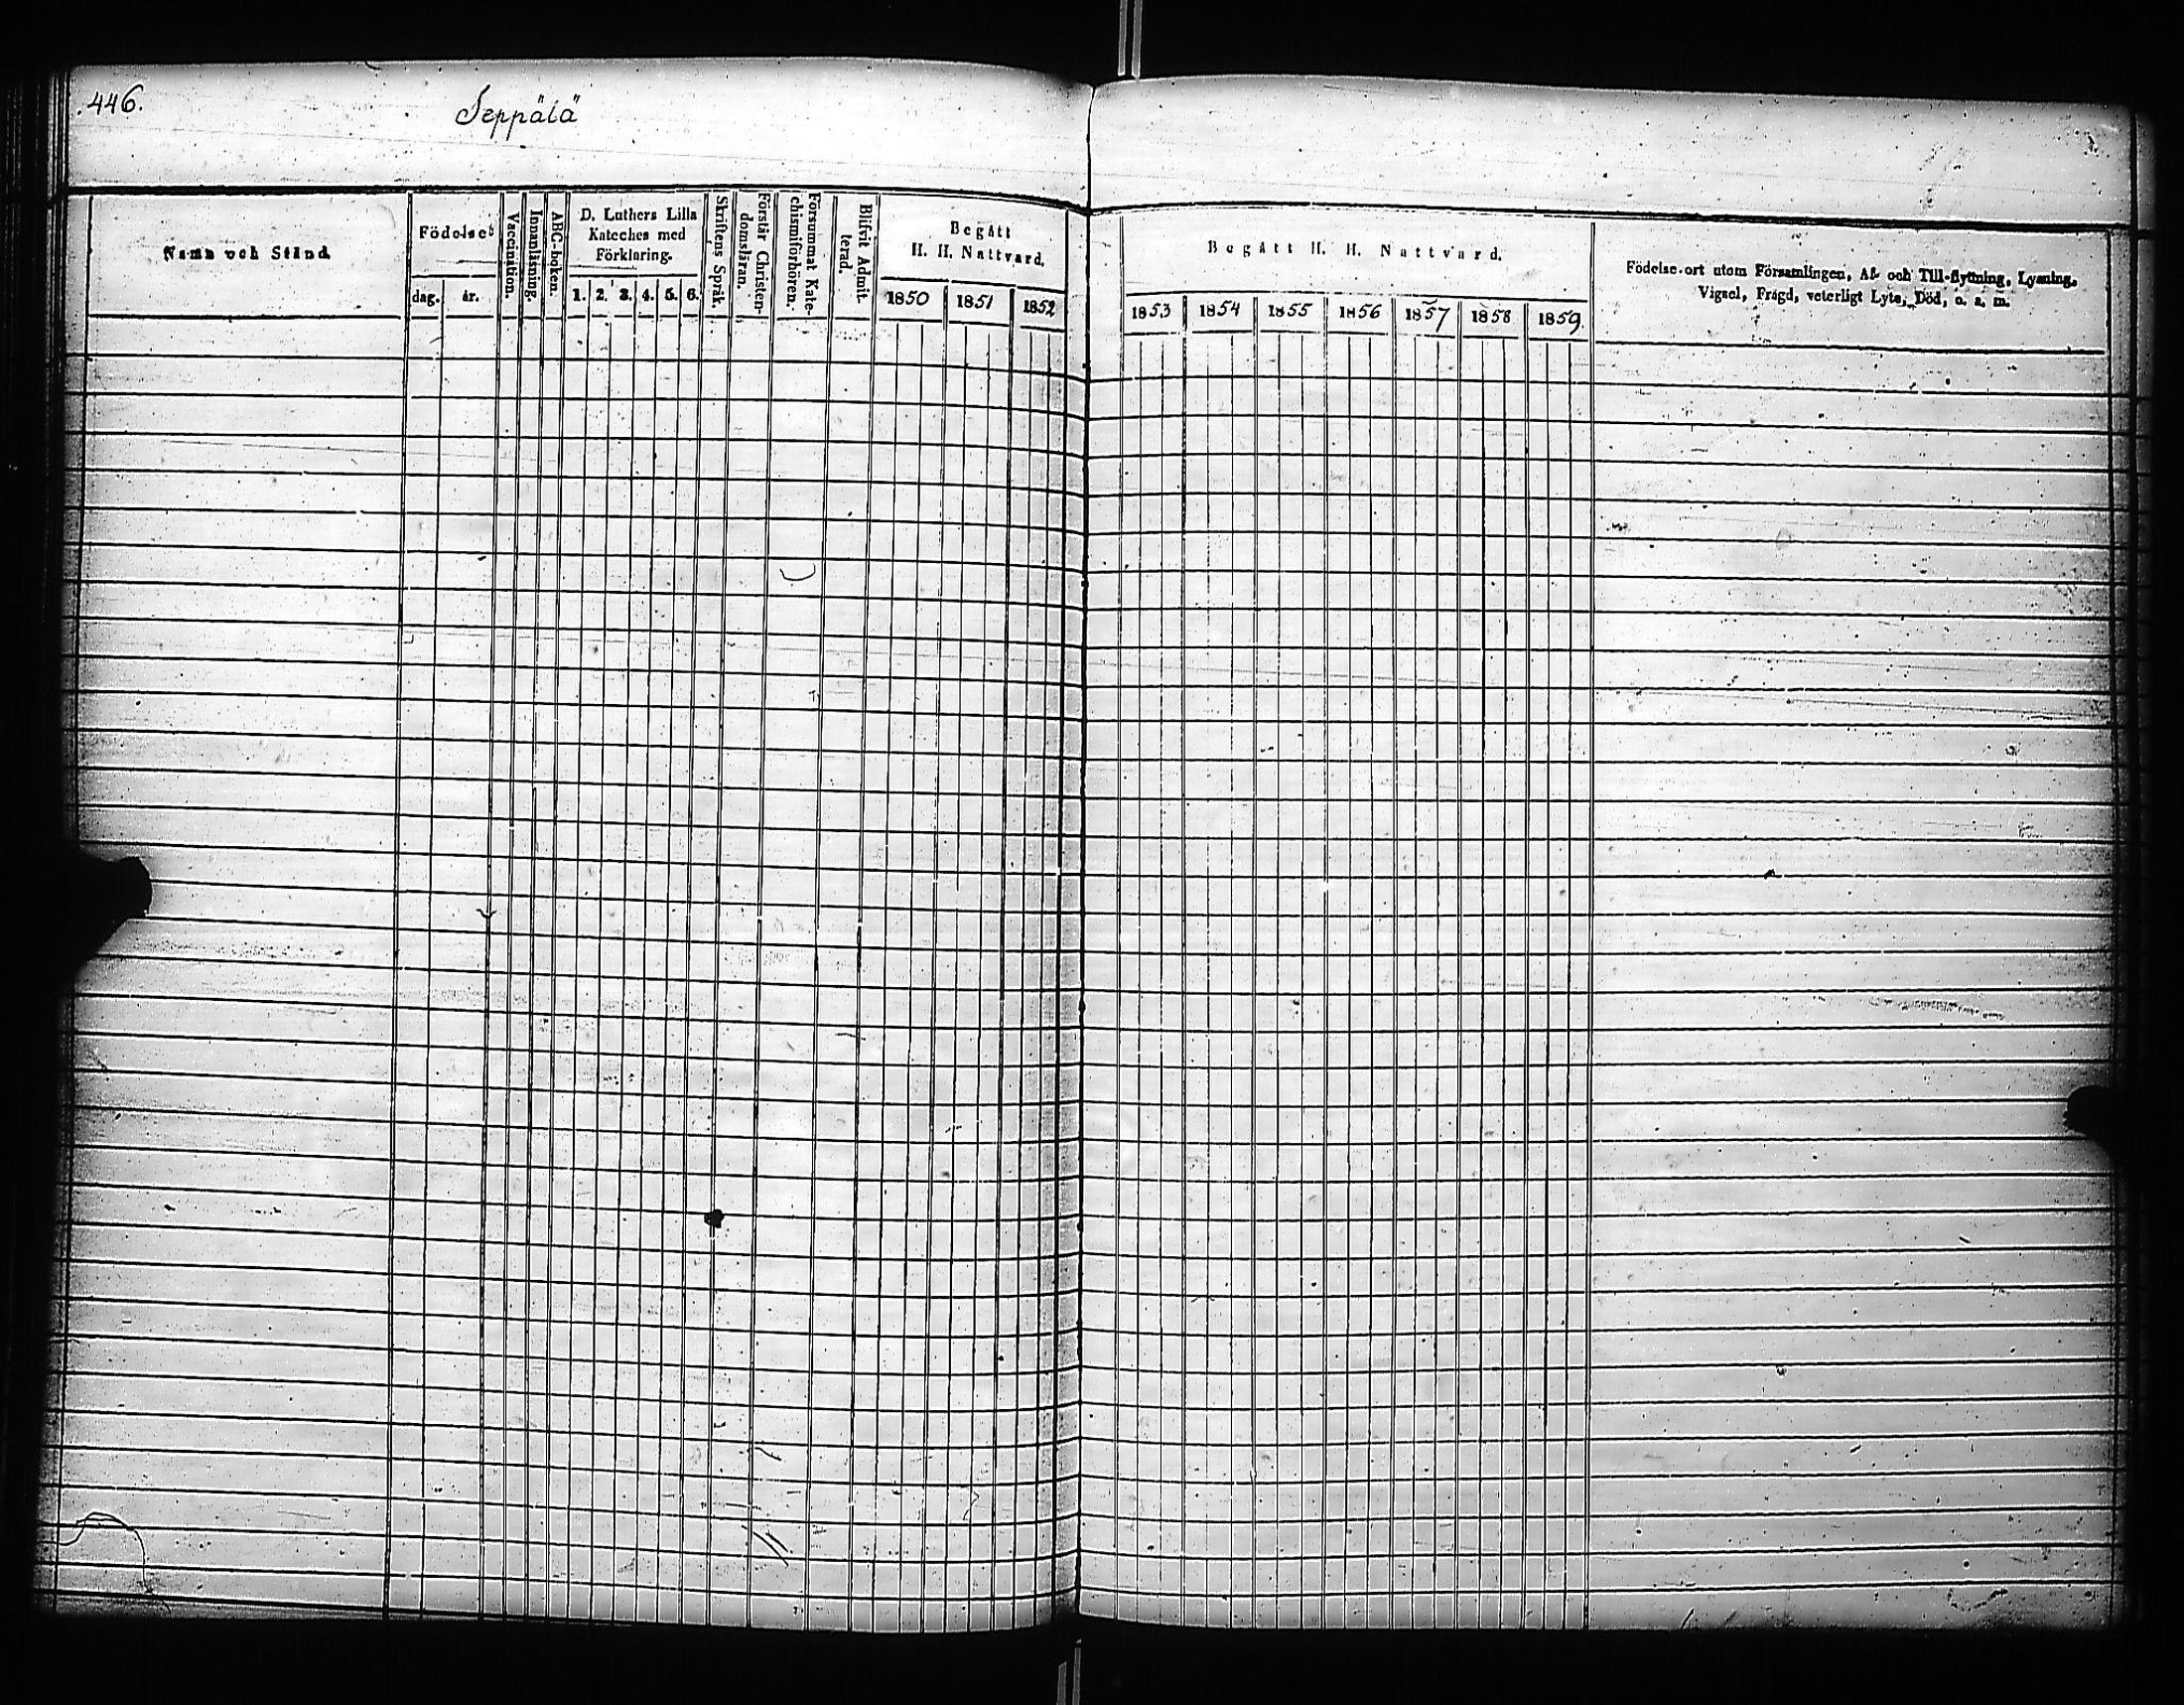 446.
Seppälä
Namn och Stånd.
Födelse-
dag.
år.
Vaccination.
Innanläsning.
ABC-boken.
D. Luthers Lilla
Kateches med
Förklaring.
1. 2. 3. 4. 5. 6.
Skriftens Språk.
Förstår Christen-
domsläran.
Försummat Kate-
chismiförhören.
Blifvit Admit-
terad.
Begått
H. H. Nattvard.
1850 1851 1852
Begått H. H. Nattvard.
1853 1854 1855 1856 1857 1858 1859.
Födelse-ort utom Församlingen, Af- och Till-flyttning, Lysning,
Vigsel, Frägd, veterligt Lyte, Död, o. s. m.